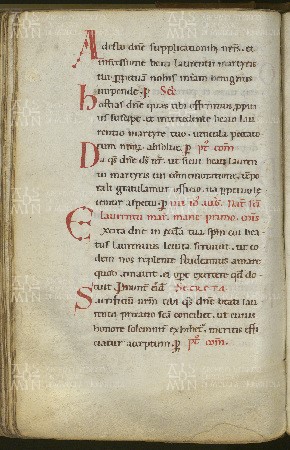 Adesto dne supplicationib; nris. et
intercessione beati laurentii martyris
tui ppetuam nobis miam benignus
impende. p. Sec
hostias dne quas tibi offerimus, ppiti
us suscipe. et intercedente beato lau
rentio martyre tuo. uincula peccato
rum nroru absolue. p. pt com.
Da qs dne ds nr. ut sicut beati lauren
tii martyris tui comemoratione. tepo
rali gratulamur officio. ita ppetuo le
temur aspectu. p. iiii id aug. nat sci
laurentii mar. mane primo. oro
Excita dne in eccla tua spm cui bea
tus laurentius leuita seruiuit. ut eo
dem nos repleti studeamus amare
quod amauit. et ope exercere qd do
cuit. p SECRETA
Sacrificiu nrm tibi qs dne beati lau
rentii pcatio sca conciliet. ut cuius
honore solemnit exhibet. meritis effi
ciatur acceptum. p. pt com.